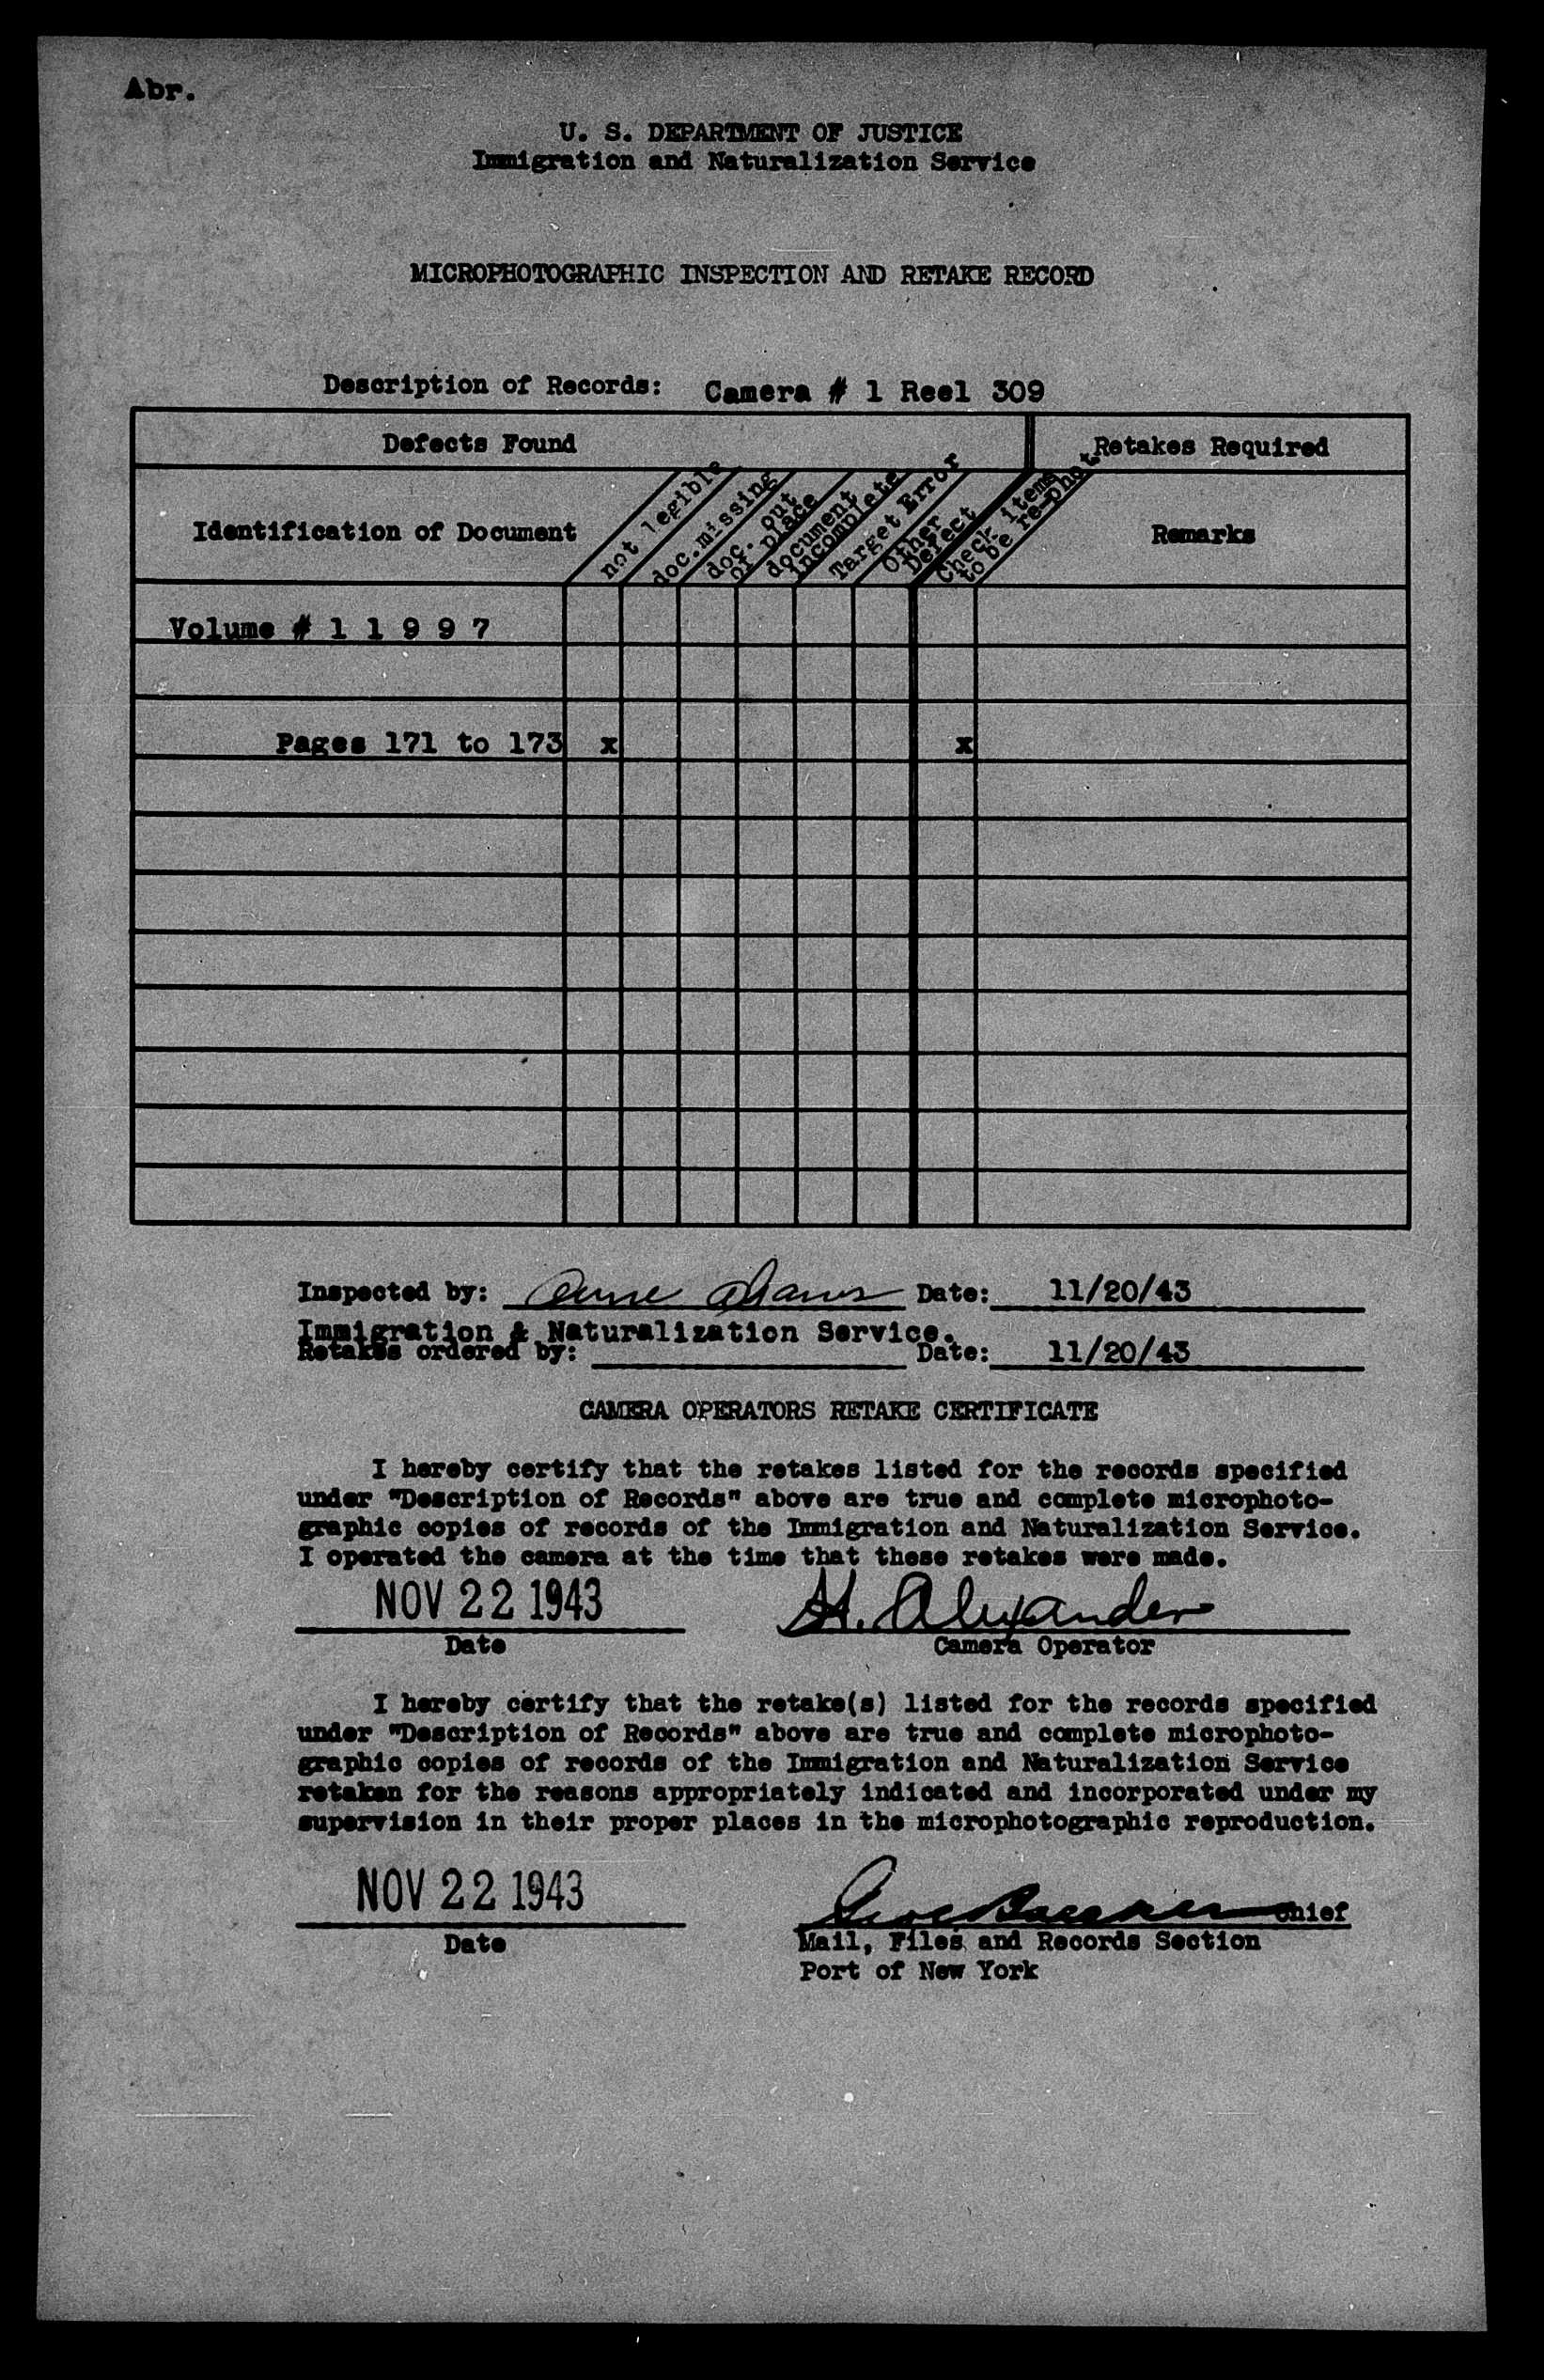 Abr.
U. S. DEPARTMENT OF JUSTICE
Immigration and Naturalization Service
MICROPHOTOGRAPHIC INSPECTION AND RETAKE RECORD
Description of Records: Camera # 1 Reel 309
Defects Found
Retakes Required
Identification of Document
not legible
doc.missing
doc. out
of place
document
incomplete
Target Error
Other
Defect
Check items
to be re-phot
Remarks
Volume # 1 1 9 9 7
Pages 171 to 173 x x
Inspected by: Anne Adams Date: 11/20/43
Immigration & Naturalization Service.
Retakes ordered by: Date: 11/20/43
CAMERA OPERATORS RETAKE CERTIFICATE
I hereby certify that the retakes listed for the records specified
under "Description of Records" above are true and complete microphoto-
graphic copies of records of the Immigration and Naturalization Service.
I operated the camera at the time that these retakes were made.
NOV 22 1943 H. Alexander
Date Camera Operator
I hereby certify that the retake(s) listed for the records specified
under "Description of Records" above are true and complete microphoto-
graphic copies of records of the Immigration and Naturalization Service
retaken for the reasons appropriately indicated and incorporated under my
supervision in their proper places in the microphotographic reproduction.
NOV 22 1943 Chief
Date Mail, Files and Records Section
Port of New York